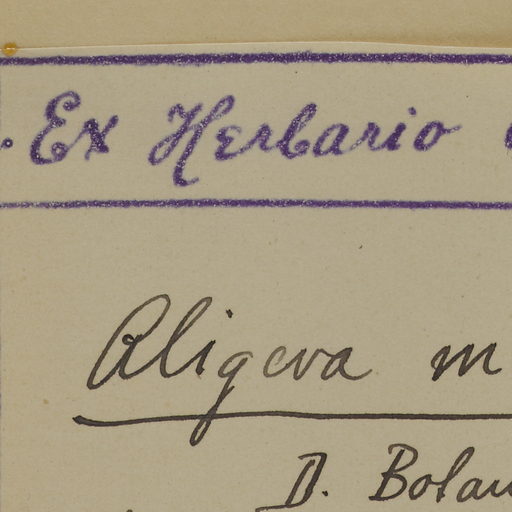 Ex Herbario
Aligera m
B. Bolan